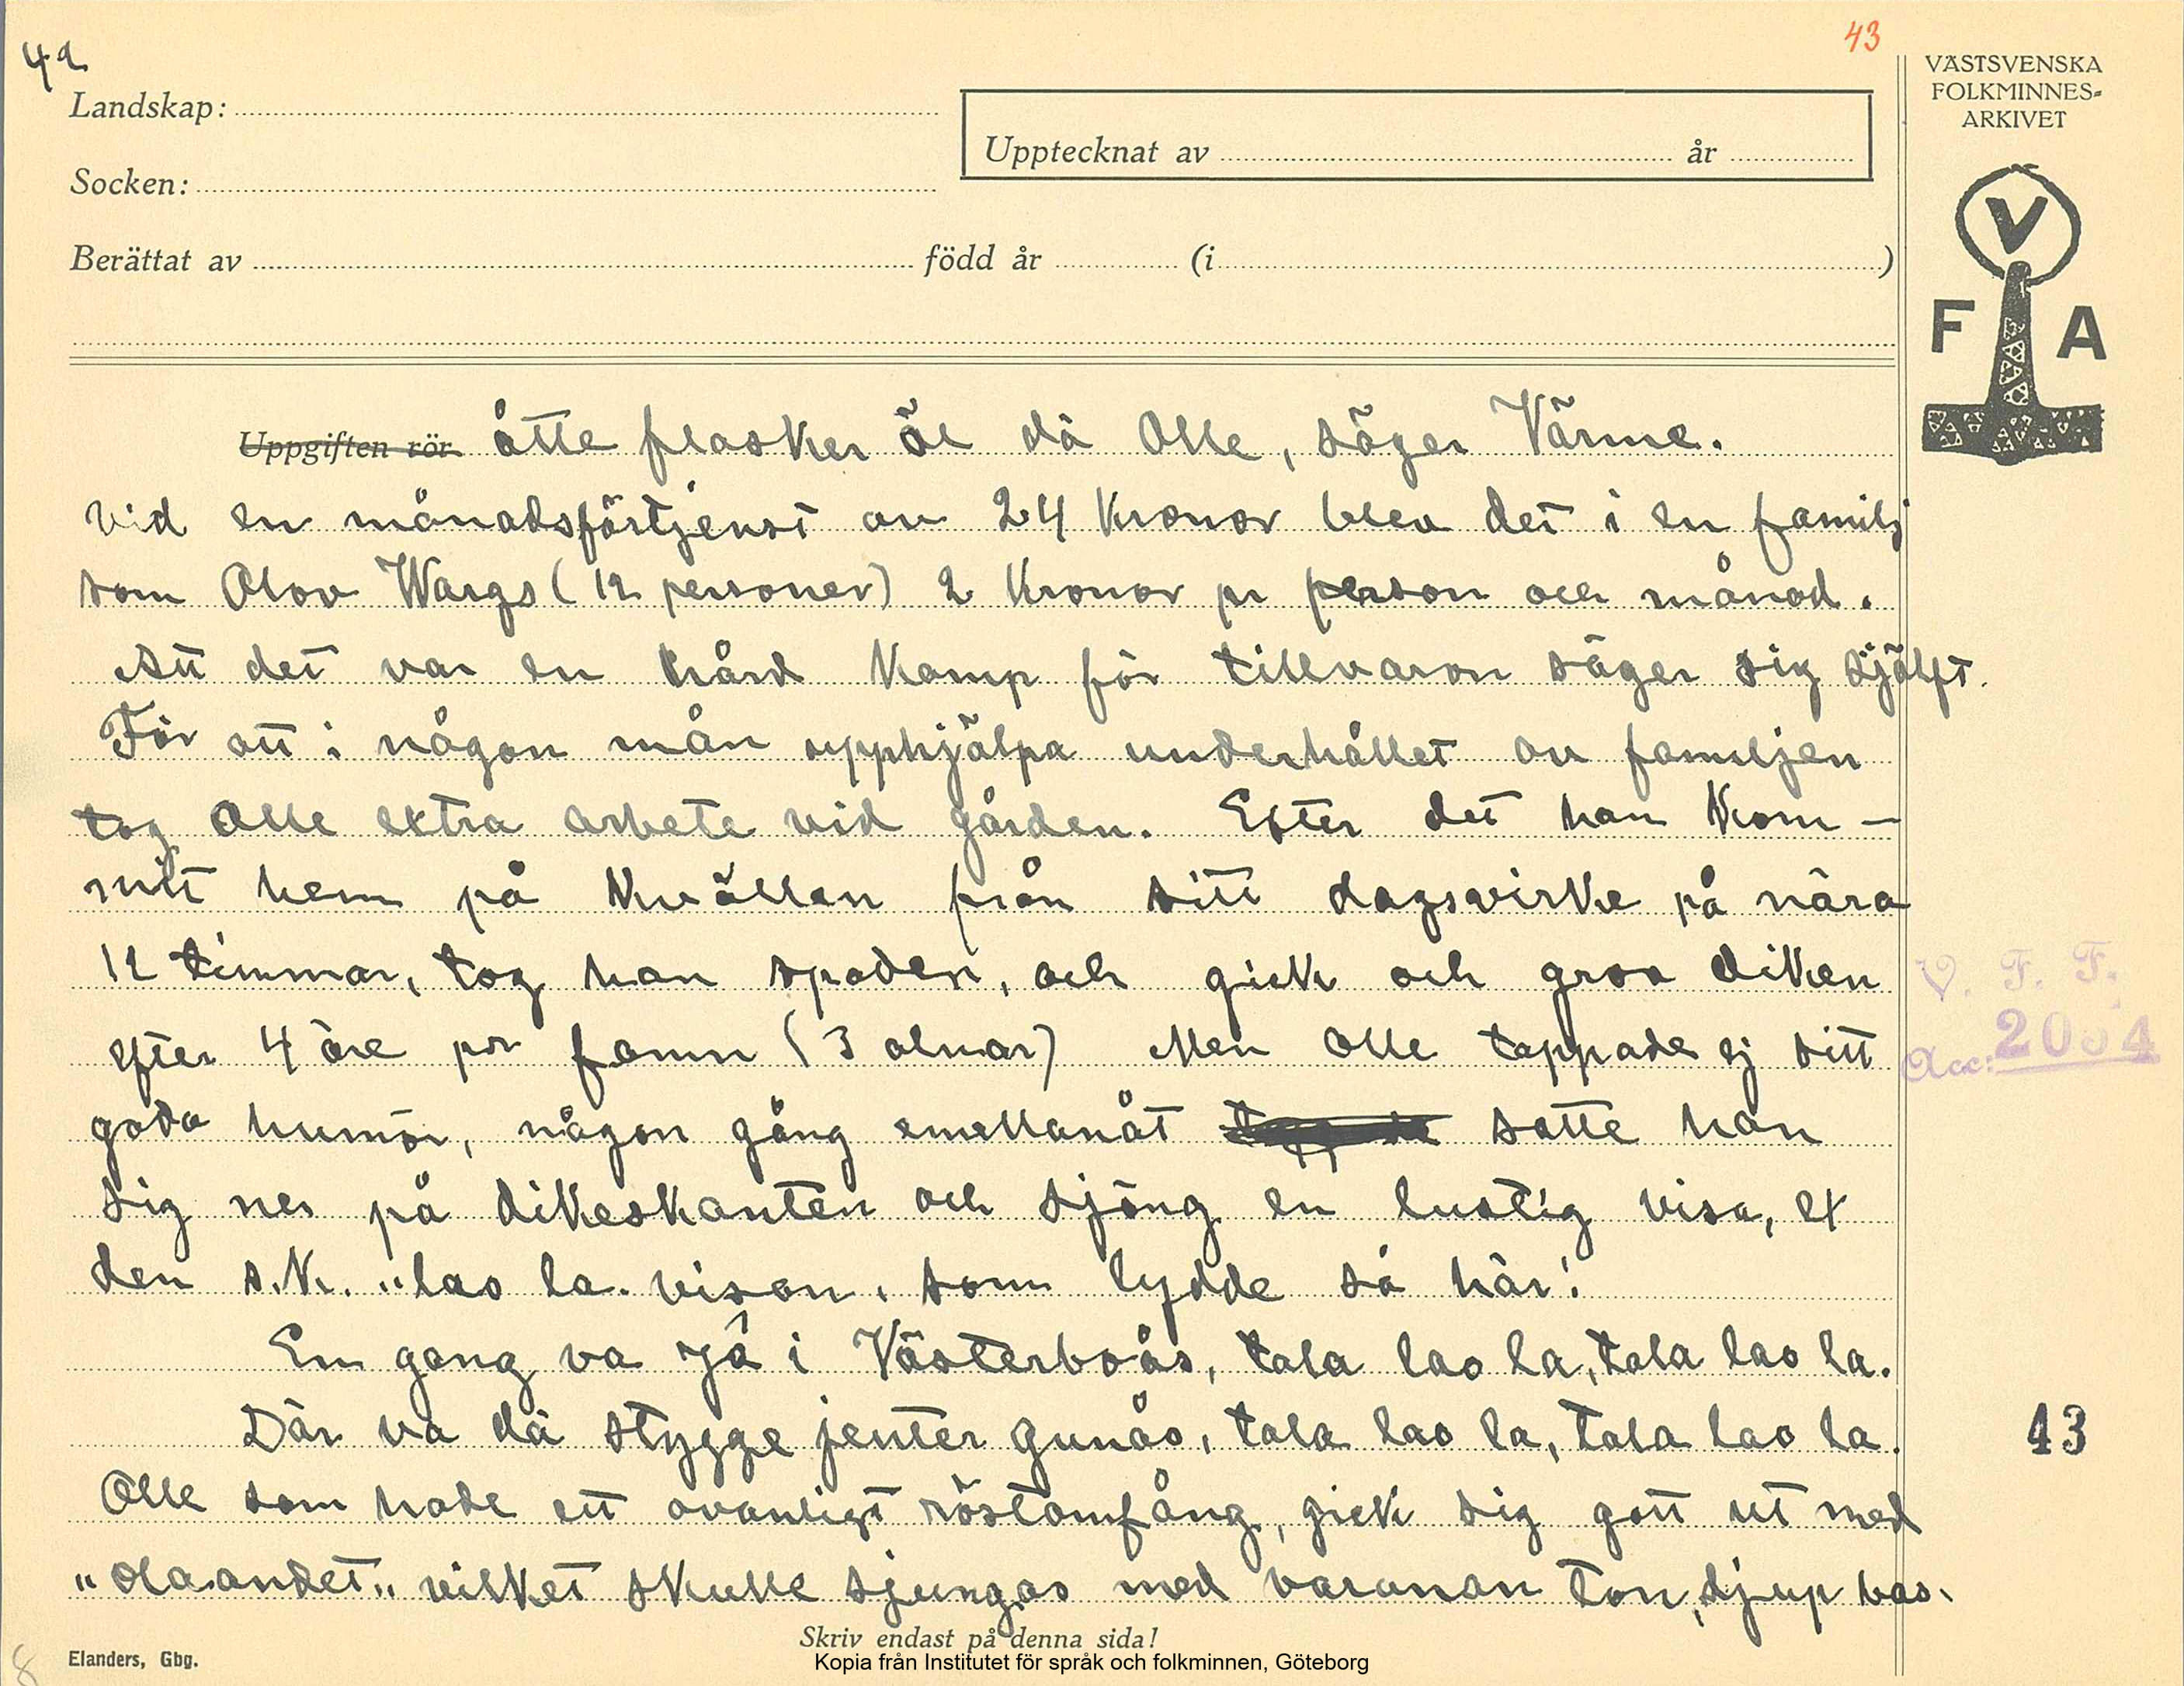 42
43
VÄSTSVENSKA
FOLKMINNES-
ARKIVET
Landskap:
Upptecknat av år
Socken:
Berättat av född år (i )
V
F A
Uppgiften rör åtte flasker öl dä Olle, säger Värme.
Vid en månadsförtjenst av 24 kronor blev det i en familj
som Olov Wargs (12 personer) 2 kronor pr person och månad.
Att det var en hård kamp för tillvaron säger sig självt.
För att i någon mån upphjälpa underhållet av familjen
tog Olle extra arbete vid gården. Efter det han kom-
mitt hem på kvällen från sitt dagsvirke på nära
12 timmar, tog han spaden, och gick och grov diken
efter 4 öre pr famn (3 alnar) Men Olle tappade ej sitt
goda humör, någon gång emellanåt satte han
sig ner på dikeskanten och sjöng en lustig visa, ex
den s.k. "lao la. visan, som lydde så här:
En gang va jä i Västerboås, tala lao la, tala lao la.
Där va dä stygge jenter gunås, tala lao la, tala lao la.
Olle som hade ett ovanligt röstomfång, gick sig gott ut med
"olaandet" vilket skulle sjungas med varannan ton, djup bas.
V. F. F.
Acc: 2054
43
Skriv endast på denna sida!
Elanders, Gbg.
8
Kopia från Institutet för språk och folkminnen, Göteborg